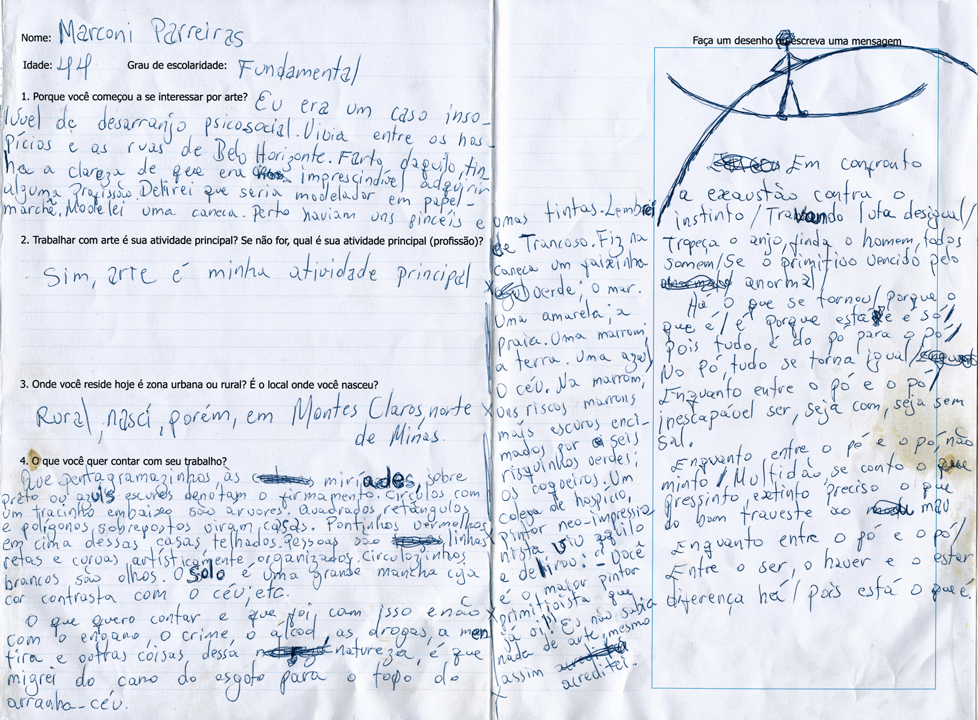 Nome: Marconi Parreiras
Idade: 44 Grau de escolaridade: Fundamental
1. Porque você começou a se interessar por arte? Eu era um caso inso-
lúvel de desarranjo psicosocial. Vivia entre os hos-
pícios e as ruas de Belo Horizonte. Farto daquilo, tin
ha a clareza de que era imprescindível adquirir
alguma profissão. Delirei que seria modelador em papel-
marchê. Modelei uma caneca. Perto haviam uns pincéis e
umas tintas. Lembrei
de Trancoso. Fiz na
caneca um faixinha
verde; o mar.
Uma amarela; a
praia. Uma marrom;
a terra. Uma azul;
o céu. Na marrom,
uns riscos marrons
mais escuros enci-
mados por seis
risquinhos verdes;
os coqueiros. Um
colega de hospício,
pintor neo-impressio
nista viu aquilo
e delirou: - Você
é o maior pintor
primitivista que
já vi! Eu não sabia
nada de arte, mesmo
assim
acreditei.
2. Trabalhar com arte é sua atividade principal? Se não for, qual é sua atividade principal (profissão)?
Sim, arte é minha atividade principal
3. Onde você reside hoje é zona urbana ou rural? É o local onde você nasceu?
Rural, nascí, porém, em Montes Claros, norte
de Minas.
4. O que você quer contar com seu trabalho?
Que pentagramazinhos às miríades, sobre
preto ou azuis escuros denotam o firmamento. Círculos com
um tracinho embaixo são árvores. Quadrados, retângulos
e polígonos, sobrepostos viram casas. Pontinhos vermelhos
em cima dessas casas, telhados. Pessoas são linhas
retas e curvas artísticamente organizados. Circulozinhos
brancos são olhos. O solo é uma grande mancha cuja
cor contrasta com o céu, etc.
O que quero contar e que foi com isso e não
com o engano, o crime, o álcool, as drogas, a men
tira e outras coisas dessa natureza, é que
migrei do cano do esgoto para o topo do
arranha-céu.
Faça um desenho ou escreva uma mensagem
Em confronto
a exaustão contra o
instinto/Travando luta desigual/
Tropeça o anjo, finda o homem, todos
somem/Se o primitivo vencido pelo
anormal/
Há o que se tornou/porque o
que é/é porque está e é só/
Pois tudo, é do pó para o pó/
No pó, tudo se torna igual/
Enquanto entre o pó e o pó/
inescapável ser, seja com, seja sem
sal.
Enquanto entre o pó e o pó, não
minto/Multidão, se conto o que
pressinto, extinto preciso o que
do bom traveste ao mau
Enquanto entre o pó e o pó/
Entre o ser, o haver e o estar
diferença há/pois está o que é.